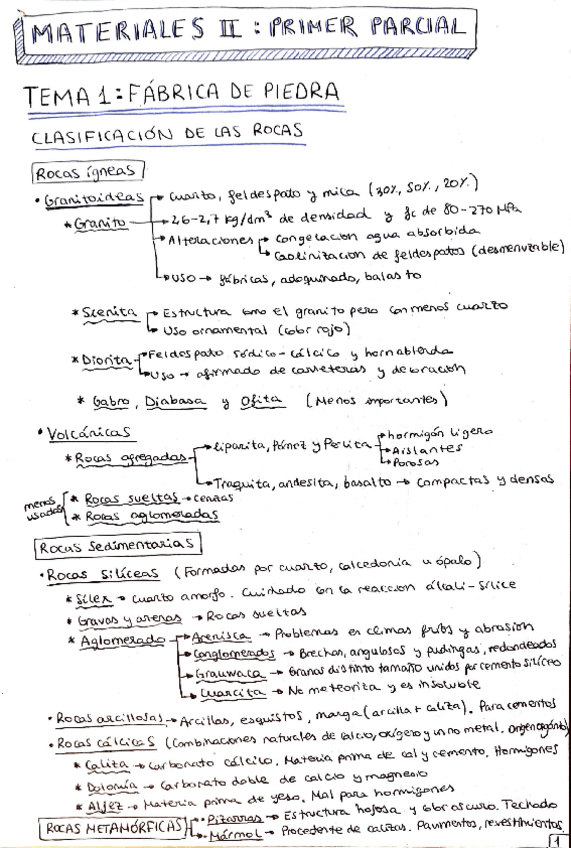 MATERIALES II : PRIMER PARCIAL
TEMA 1: FÁBRICA DE PIEDRA
CLASIFICACIÓN DE LAS ROCAS
Rocas ígneas
• Granitoideas → Cuarzo, feldespato y mica (30%, 50%, 20%)
* Granito → 2,6-2,7 kg/dm³ de densidad y fc de 80-270 MPa
→ Alteraciones → Congelación agua absorbida
→ Caolinización de feldespatos (desmenuzable)
→ USO → fábricas, adoquinado, balasto
* Sienita → Estructura como el granito pero con menos cuarzo
→ Uso ornamental (color rojo)
* Diorita → Feldespato sódico-cálcico y hornablenda
→ Uso → afirmado de carreteras y decoración
* Gabro, Diabasa y Ofita (Menos importantes)
• Volcánicas
* Rocas agregadas → Liparita, Pómez y Perlita → hormigón ligero
→ Aislantes
→ Porosas
→ Traquita, andesita, basalto → compactas y densas
menos usadas
* Rocas sueltas → cenizas
* Rocas aglomeradas
Rocas sedimentarias
• Rocas silíceas (Formadas por cuarzo, calcedonia u ópalo)
* Sílex → Cuarzo amorfo. Cuidado con la reacción álcali-sílice
* Gravas y arenas → Rocas sueltas
* Aglomerado → Arenisca → Problemas es climas fríos y abrasión
→ Conglomerados → Brechas, angulosos y pudingas, redondeados
→ Grauwaca → Granos distinto tamaño unidos por cemento silíceo
→ Cuarcita → No meteoriza y es insoluble
• Rocas arcillosas → Arcillas, esquistos, marga (arcilla + caliza). Para cementos
• Rocas cálcicas (Combinaciones naturales de calcio, oxígeno y un no metal.
* Caliza → Carbonato cálcico. Materia prima de cal y cemento. Hormigones
* Dolomía → Carbonato doble de calcio y magnesio
* Aljez → Materia prima de yeso. Mal para hormigones
ROCAS METAMÓRFICAS → • Pizarras → Estructura hojosa y color oscuro. Techado
→ • Mármol → Procedente de calizas. Pavimentos, revestimientos
1